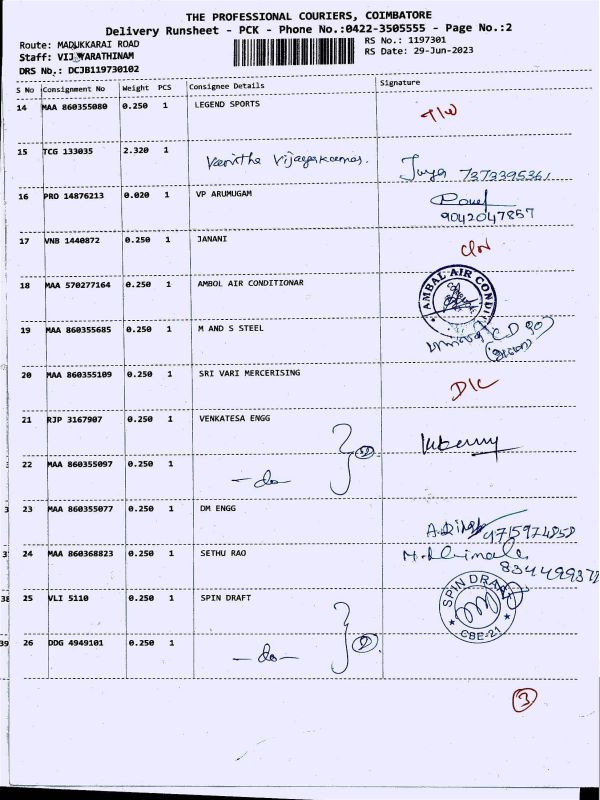 THE PROFESSIONAL COURIERS, COIMBATORE
Delivery Runsheet - PCK - Phone No.:0422-3505555 - Page No.:2
Route: MADUKKARAI ROAD
RS No.: 1197301
Staff: VIJAYARATHINAM
RS Date: 29-Jun-2023
DRS No.: DCJB119730102
S No Consignment No Weight PCS Consignee Details Signature
14 MAA 860355080 0.250 1 LEGEND SPORTS
15 TCG 133035 2.320 1 Vanitha Vijayakumar.
7373395361
16 PRO 14876213 0.020 1 VP ARUMUGAM
9042047857
17 VNB 1440872 0.250 1 JANANI
18 MAA 570277164 0.250 1 AMBOL AIR CONDITIONAR AMBAL AIR CONDI
19 MAA 860355685 0.250 1 M AND S STEEL
20 MAA 860355109 0.250 1 SRI VARI MERCERISING D/L
21 RJP 3167907 0.250 1 VENKATESA ENGG
22 MAA 860355097 0.250 1 -do-
23 MAA 860355077 0.250 1 DM ENGG 9715974858
24 MAA 860368823 0.250 1 SETHU RAO
25 VLI 5110 0.250 1 SPIN DRAFT SPIN DRAFT
CBE-21
26 DDG 4949101 0.250 1 -do-
3